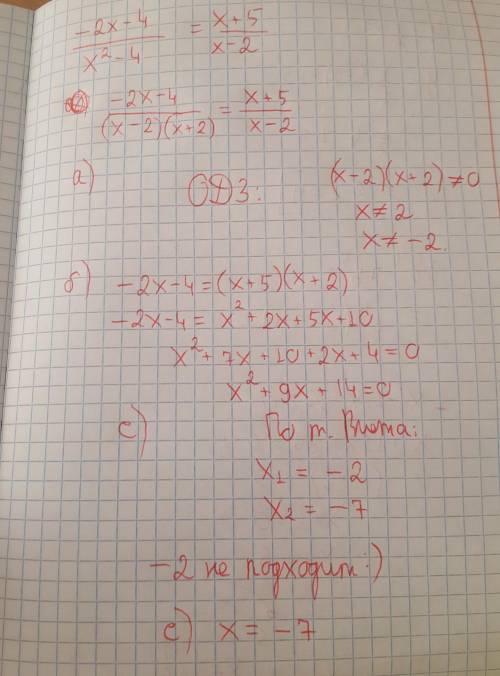 (-2x-4)/(x²-4) = (x+5)/(x-2)
(-2x-4)/((x-2)(x+2)) = (x+5)/(x-2)
а) ОДЗ: (x-2)(x+2)≠0
x≠2
x≠-2.
б) -2x-4=(x+5)(x+2)
-2x-4= x²+2x+5x+10
x²+7x+10+2x+4=0
x²+9x+14=0
с) По т. Виета:
x₁ = -2
x₂ = -7
-2 не подходит :)
е) x = -7